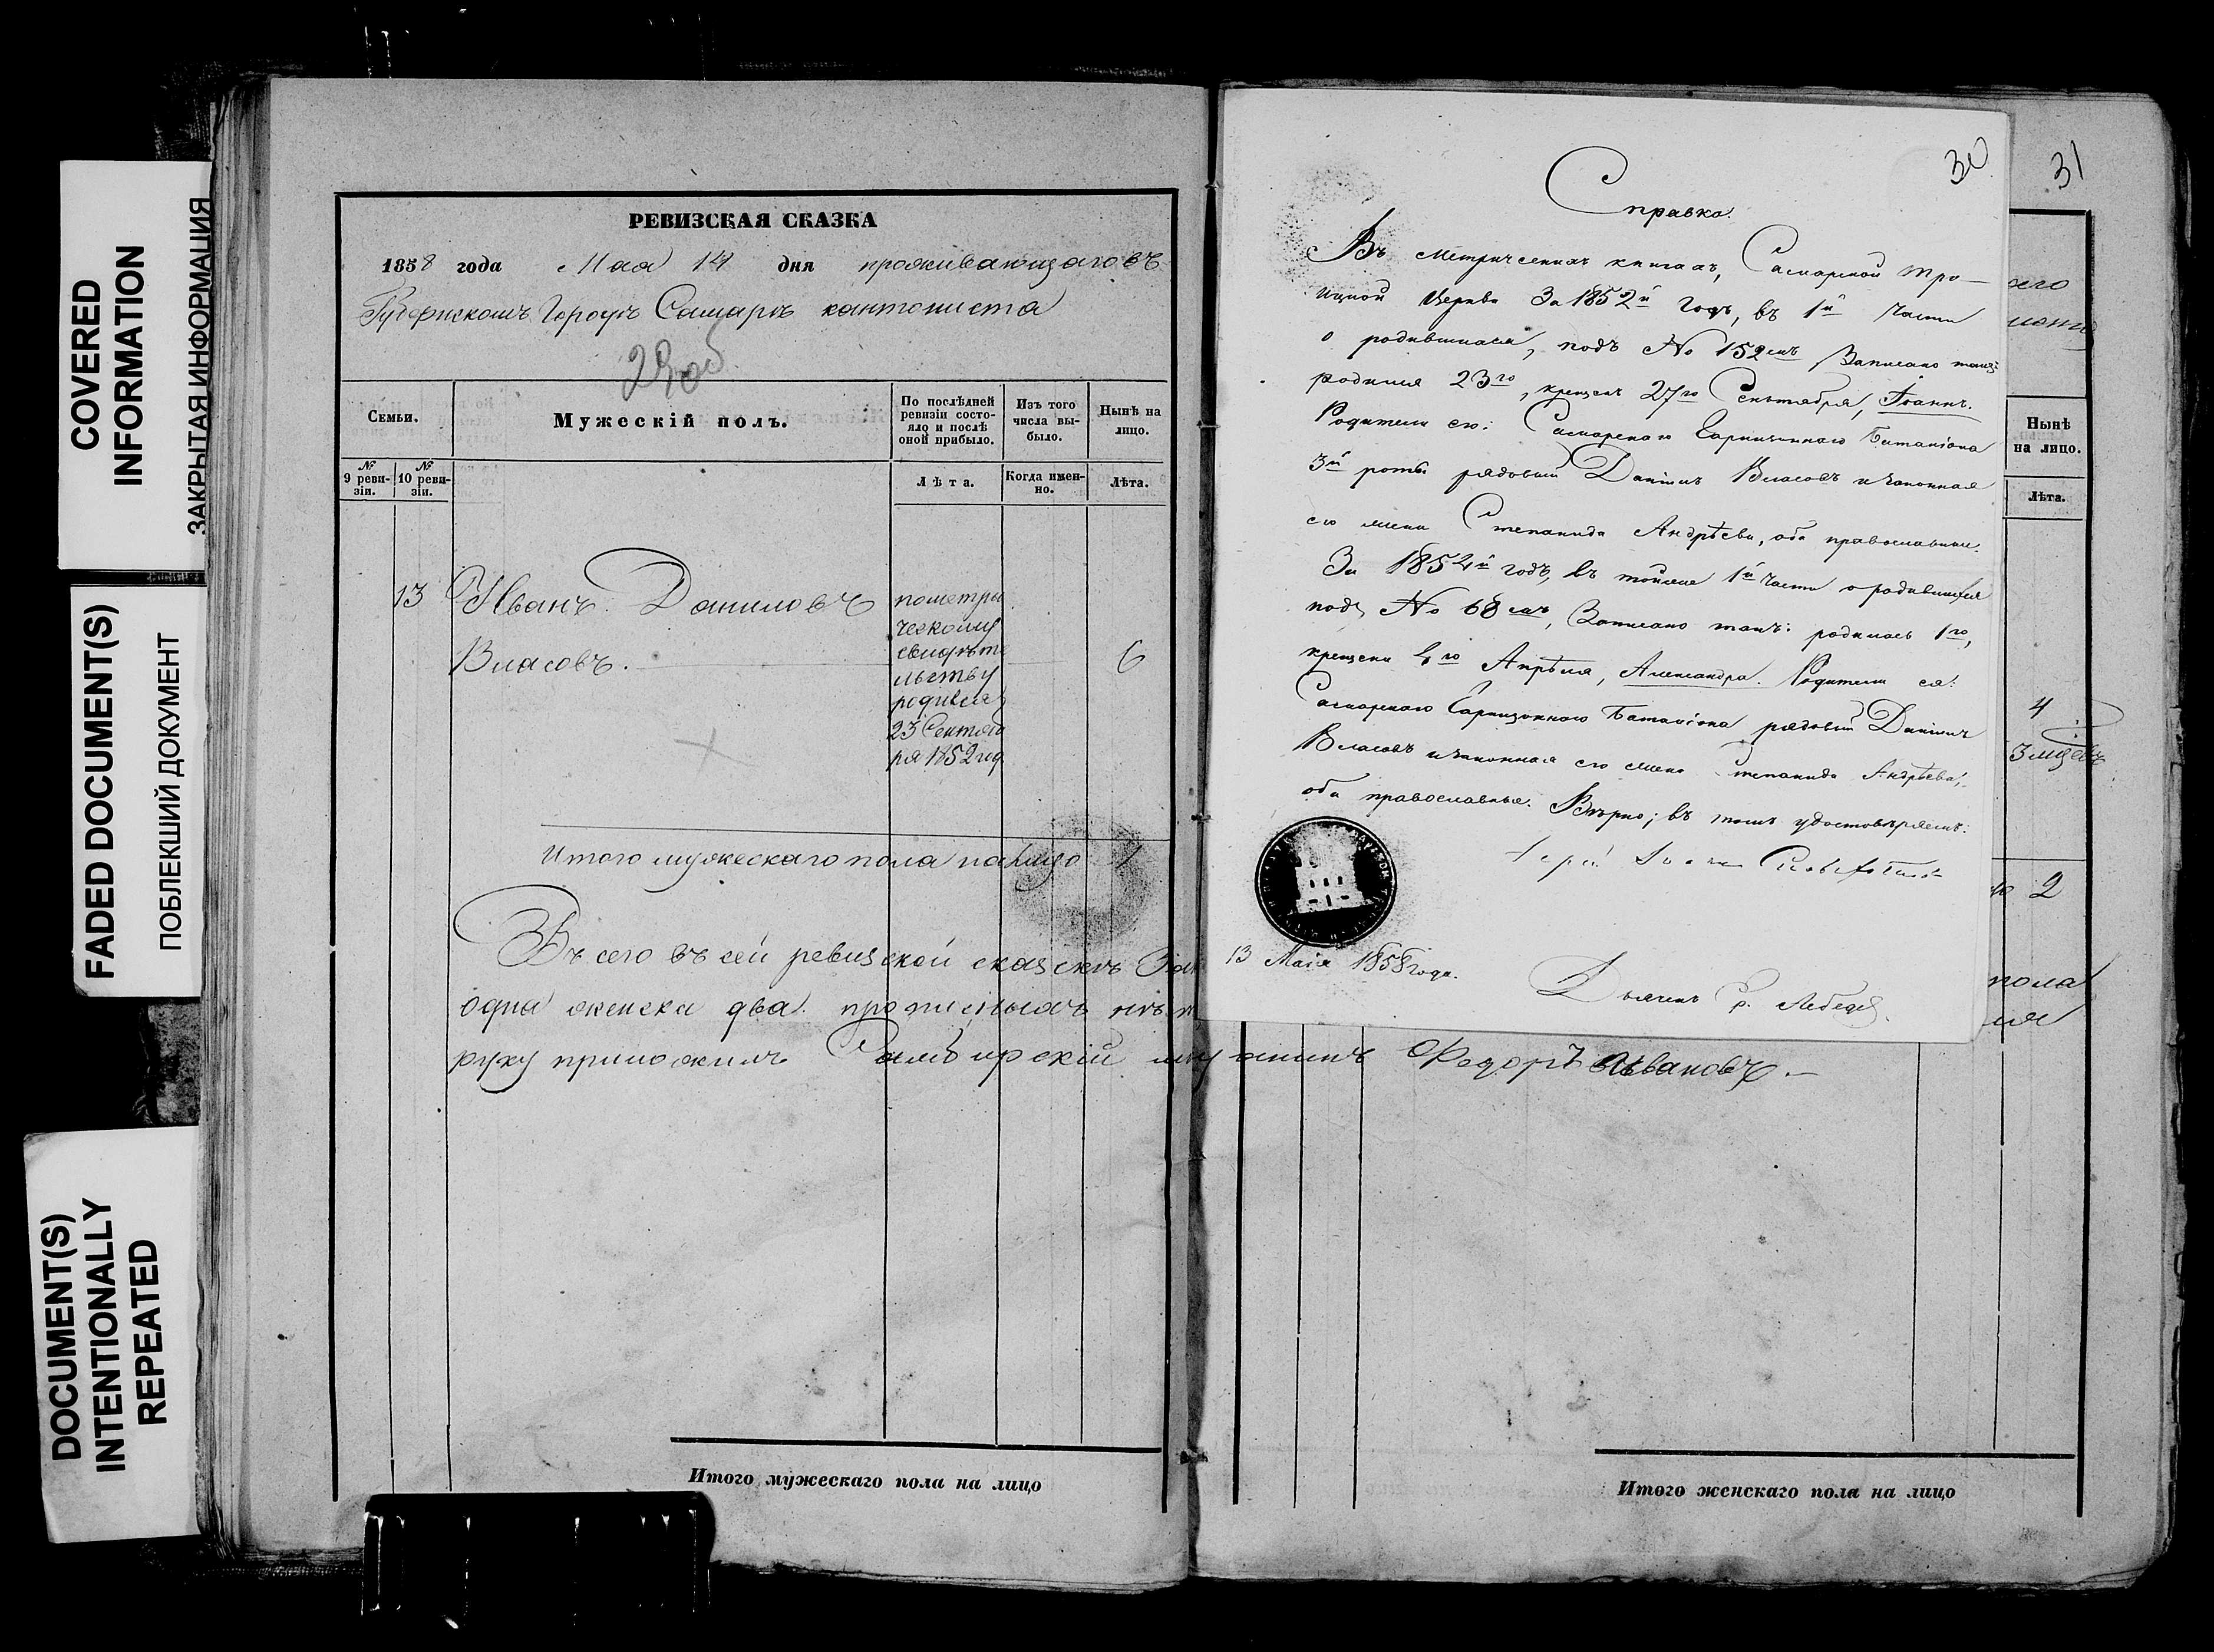 COVERED
INFORMATION
ЗАКРЫТАЯ ИНФОРМАЦИЯ
FADED DOCUMENT(S)
ПОБЛЕКШИЙ ДОКУМЕНТ
DOCUMENT(S)
INTENTIONALLY
REPEATED
РЕВИЗСКАЯ СКАЗКА
1858 года Мая 14 дня проживающаго въ
Губернскомъ Городѣ Самарѣ кантониста
29об
Семьи.
Мужескій полъ.
По послѣдней
ревизіи состо-
яло и послѣ
оной прибыло.
Изъ того
числа вы-
было.
Нынѣ на
лицо.
№
9 реви-
зіи.
№
10 реви-
зіи.
Лѣта.
Когда имен-
но.
Лѣта.
13 Иванъ Даниловъ
Власовъ.
пометри
ческому
свидѣте
льству
родился
23 Сентяб
ря 1852 год
6
Итого мужескаго пола налицо 1
Всего въ сей ревизской сказскѣ
одна женска два прописныхъ нѣт
руку приложилъ мѣщанинъ Федоръ Ивановъ.
Итого мужескаго пола на лицо
30
Справка.
Въ Метрическихъ книгахъ, Самарской Тро-
ицкой Церкви За 1852й годъ, въ 1й Части
о родившихся, подъ № 152мъ Записано такъ:
родился 23го, крещенъ 27го Сентября, Іоаннъ.
Родители его: Самарскаго Гарнизоннаго Баталіона
3й роты рядовый Даніилъ Власовъ и законная
его жена Степанида Андрѣева, оба православные.
За 1854й годъ, въ тойже 1й Части о родившихся
подъ № 68мъ, Записано такъ: родилась 1го,
крещена 4го Апрѣля, Александра. Родители ея:
Самарскаго Гарнизоннаго Баталіона рядовый Даніилъ
Власовъ и законная его жена Степанида Андрѣева,
оба православные. Вѣрно; въ томъ удостовѣряемъ:
Іерей Іоаннъ
13 Маія 1858 года.
Дьячекъ Лебедев
31
его
Нынѣ
на лицо.
Лѣта.
4
3 мѣсяцъ
2
пола
Итого женскаго пола на лицо